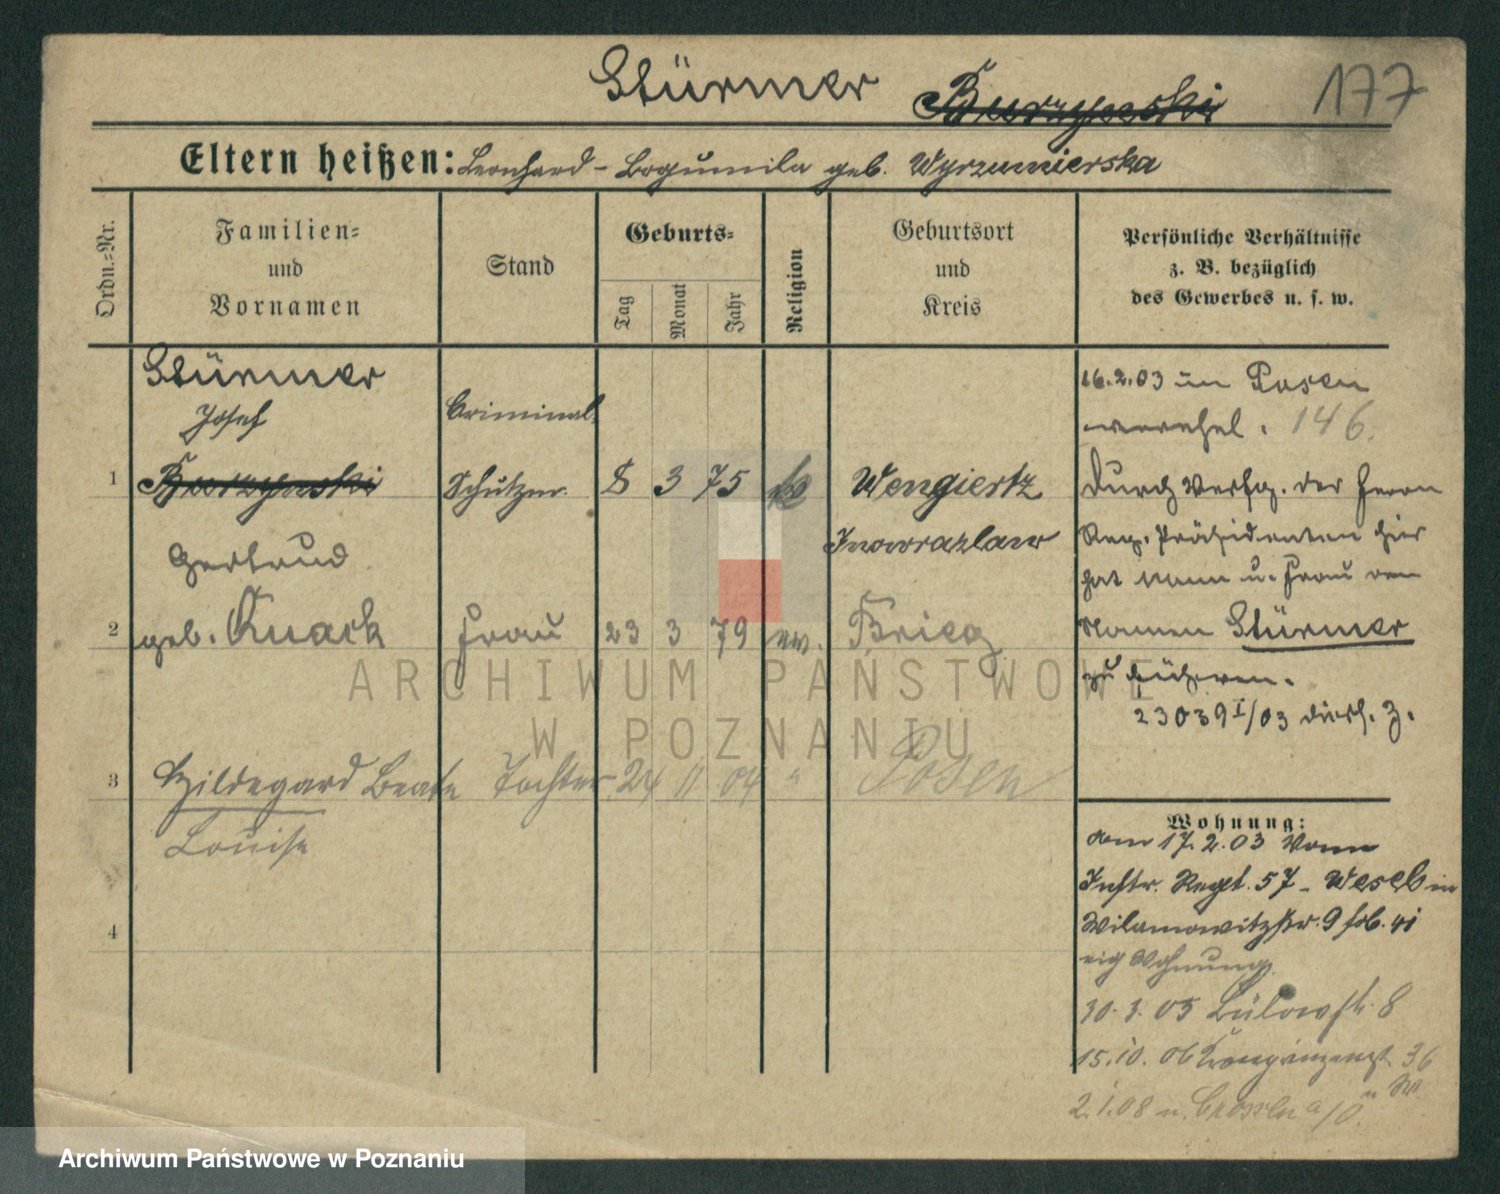 Stürmer Burzynski 177
Eltern heißen: Leonhard - Bogumila geb. Wyrzumierska
Ordn.-Nr.
Familien-
und
Vornamen
Stand
Geburts-
Tag
Monat
Jahr
Religion
Geburtsort
und
Kreis
Persönliche Verhältnisse
z. B. bezüglich
des Gewerbes u. s. w.
Stürmer
Josef
Criminal-
1 Burzynski Schutzm. 8 3 75 Wengiertz
Inowrazlaw
Gertrud
2 geb. Knack Frau 23 3 79 ev. Brieg
3 Hildegard Beate Tochter 24 11 04 " Posen
Louise
4
16.2.03 in Posen
verehel. 146.
Durch Verfg. des Herrn
Reg. Präsidenten hier
hat Mann u. Frau den
Namen Stürmer
zu führen.
23039 I/03 diess. Z.
Wohnung:
am 17.2.03 vom
Inftr. Regt. 57 - Wesel in
Wilamowitzstr. 9
eig Wohnung
30.3.05 Bülowstr. 8
15.10.06 Kronprinzenst. 36
2.1.08 n.
ARCHIWUM PAŃSTWOWE
W POZNANIU
Archiwum Państwowe w Poznaniu